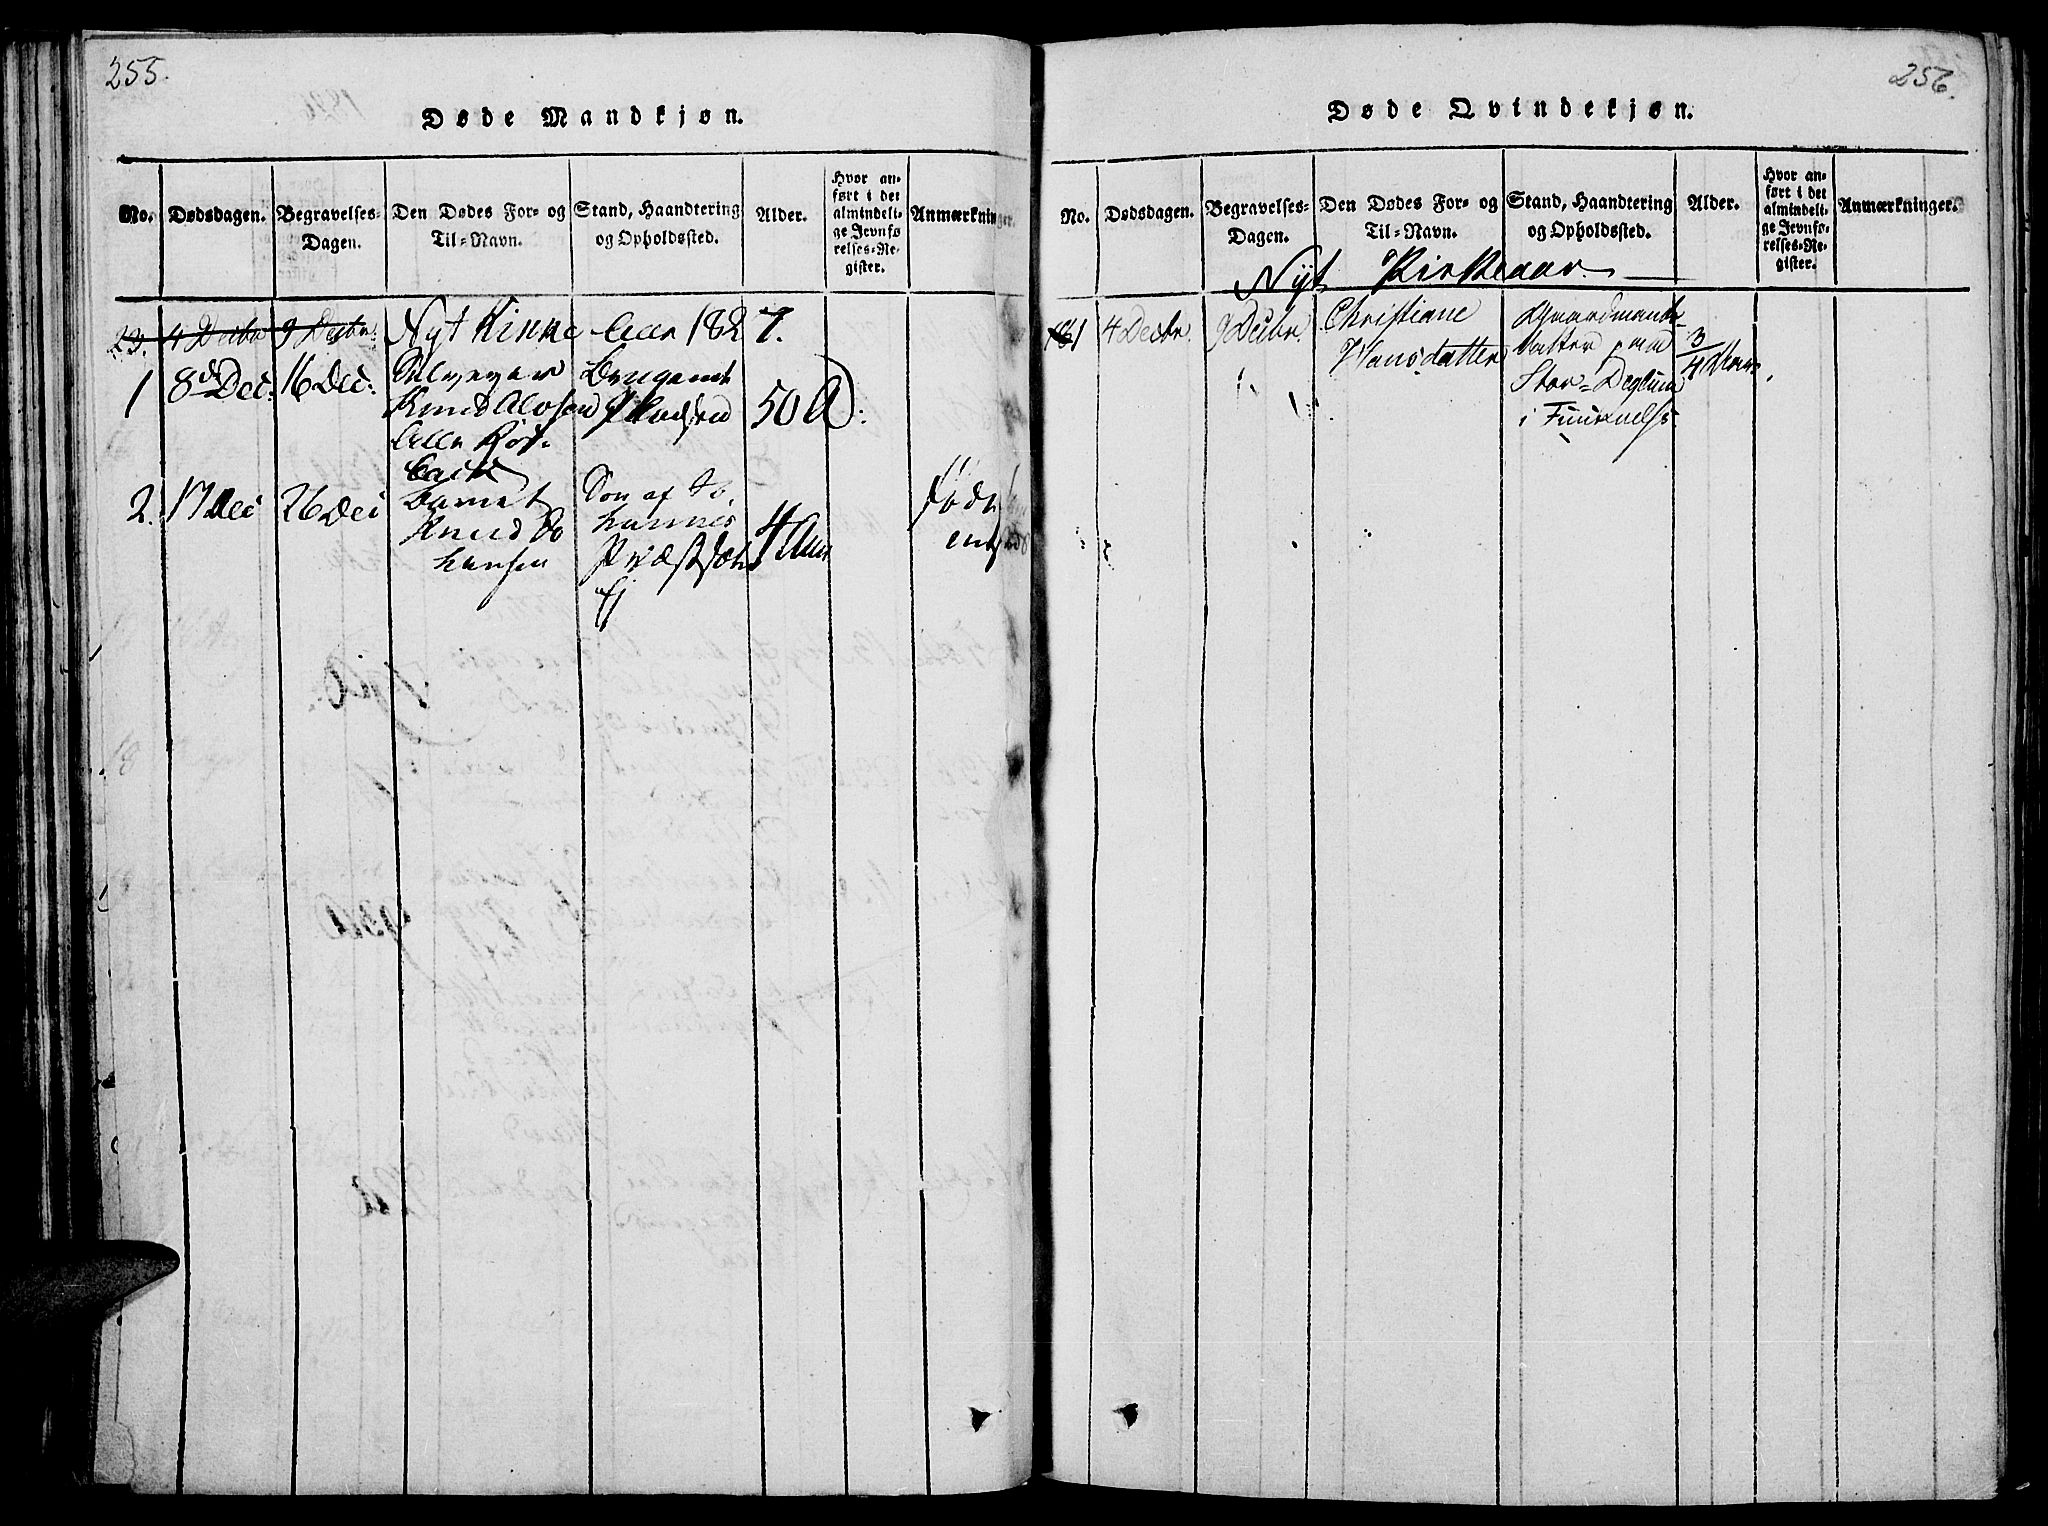 255.
Døde Mandkjøn.
No. Dødsdagen. Begravelses-Dagen. Den Dødes For- og Til-Navn. Stand, Haandtering og Opholdssted. Alder. Hvor anført i det almindelige Jevnførelses-Register. Anmærkninger.
23. 4 Decbr 9 Decbr. Nyt Kirke Aar 1827.
1 8de Dec: 16 Dec: 50 A:
Knud Olosen
2. 17 Dec 26 Dec Barnet Søn af Jo,
Knud Jo hannes 4 Aar
hansen
256.
Døde Qvindekjøn.
No. Dødsdagen. Begravelses-Dagen. Den Dødes For- og Til-Navn. Stand, Haandtering og Opholdssted. Alder. Hvor anført i det almindelige Jevnførelses-Register. Anmærkninger.
Nyt Kirkeaar.
1 4 Decbr. 9 Decbr. Christiane Gaardmands
Hansdatter datter paa 3/4 Aar.
Stor-Deglum
i Furnes